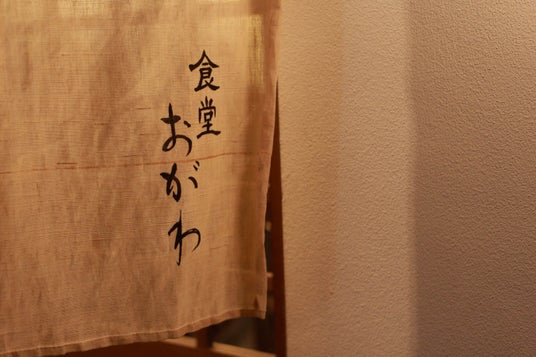 食堂
おがわ